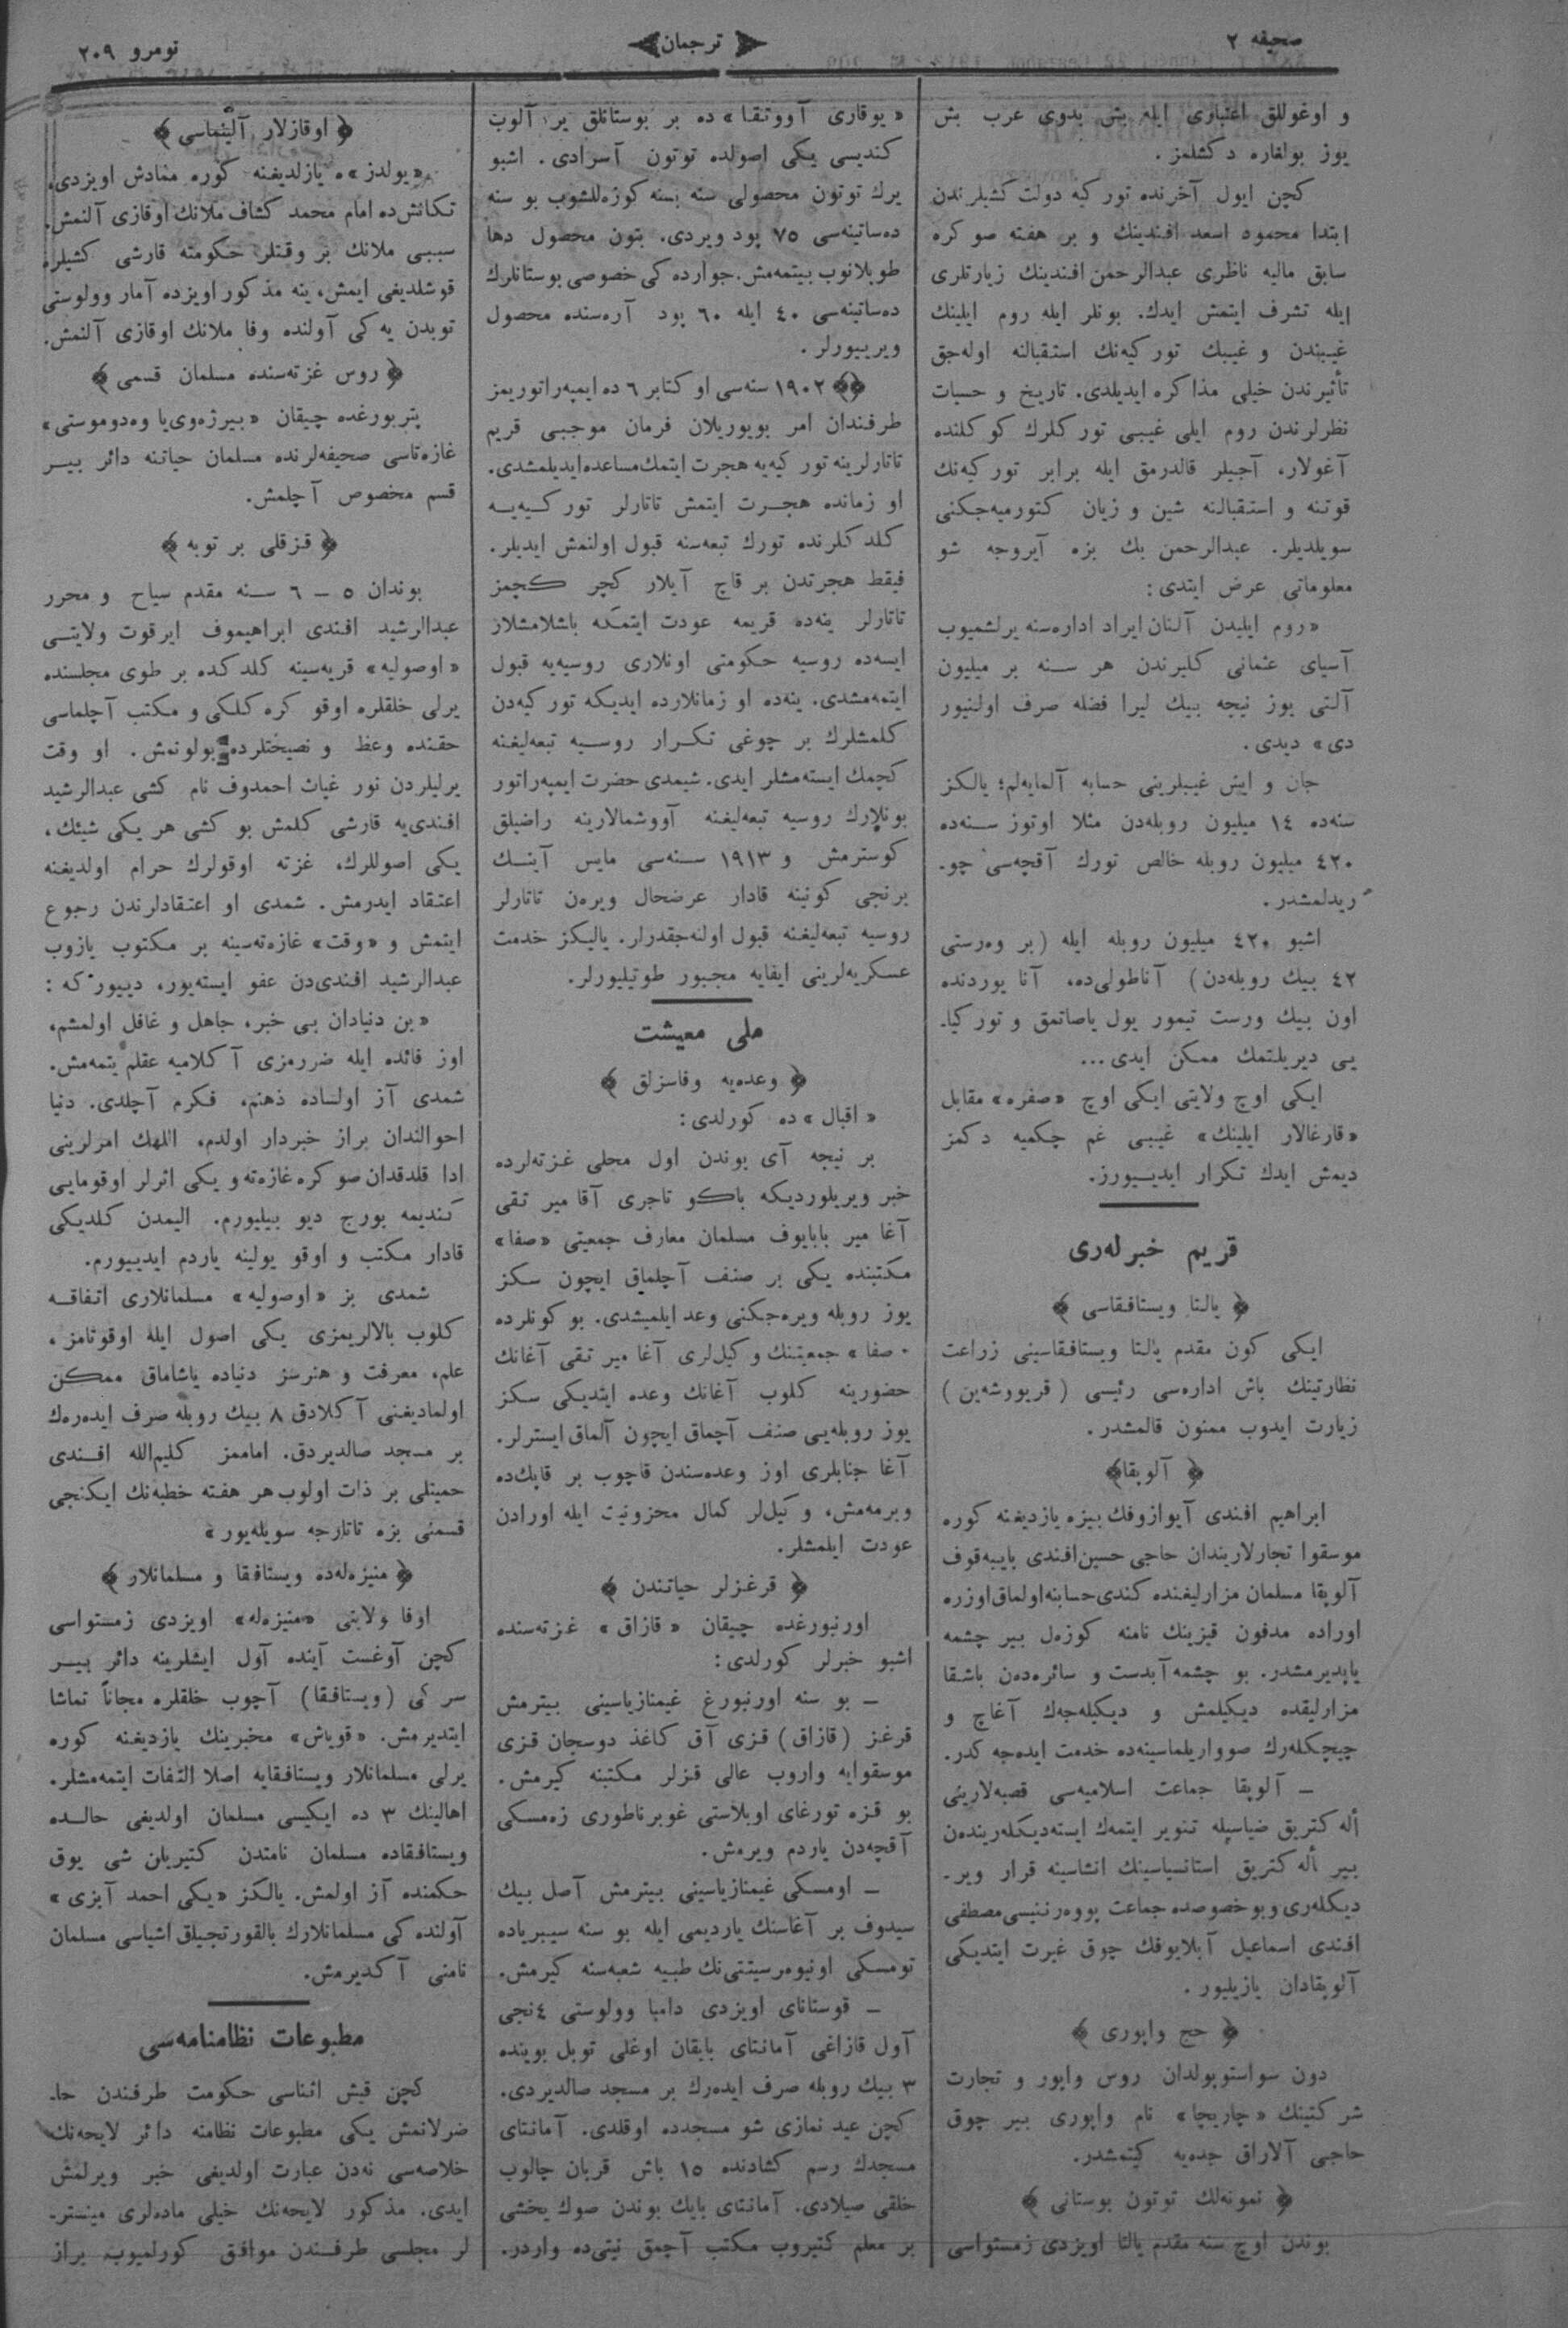 صحیفه ٢
ترجمان
نومرو ٢٠٩
و اوغوللق اعتباری ایله بش بدوی عرب بش
یوز بولغاره دکشلمز.
کچن ایول آخرنده تورکیه دولت کشیلرندن
ابتدا محمود اسعد افندینك و بر هفته صوکره
سابق مالیه ناظری عبدالرحمن افندینك زیارتلری
ایله تشرف ایتمش ایدك. بونلر ایله روم ایلینك
غیبندن و غیبك تورکیه‌نك استقبالنه اوله‌جق
تأثیرندن خیلی مذاکره ایدیلدی. تاریخ و حسیات
نظرلرندن روم ایلی غیبی تورکلرك کوکلنده
آغولار، آجیلر قالدرمق ایله برابر تورکیه‌نك
قوتنه و استقبالنه شین و زیان کتورمیه‌جکنی
سویلدیلر. عبدالرحمن بك بزه آیروجه شو
معلوماتی عرض ایتدی:
«روم ایلیدن آلنان ایراد اداره‌سنه یرلشمیوب
آسیای عثمانی کلیرندن هر سنه بر میلیون
آلتی یوز نیجه بیك لیرا فضله صرف اولنیور
دی» دیدی.
جان و ایش غیبلرینی حسابه آلمایه‌لم؛ یالکز
سنه‌ده ١٤ میلیون روبله‌دن مثلا اوتوز سنه‌ده
٤٢٠ میلیون روبله خالص تورك آقچه‌سی چو-
ریدلمشدر.
اشبو ٤٢٠ میلیون روبله ایله (بر وه‌رستی
٤٢ بیك روبله‌دن) آناطولی‌ده، آنا یوردنده
اون بیك ورست تیمور یول یاصاتمق و تورکیا-
یی دیریلتمك ممکن ایدی...
ایکی اوچ ولایتی ایکی اوچ «صفره» مقابل
«قارغالار ایلینك» غیبی غم چکمیه دکمز
دیمش ایدك تکرار ایدییورز.
قریم خبرله‌ری
﴿ یالتا ویستافقاسی ﴾
ایکی کون مقدم یالتا ویستافقاسینی زراعت
نظارتینك باش اداره‌سی رئیسی (قریووشه‌ین)
زیارت ایدوب ممنون قالمشدر.
﴿ آلوپقا ﴾
ابراهیم افندی آیوازوفك بیزه یازدیغنه کوره
موسقوا تجارلاریندان حاجی حسین افندی بایبه‌قوف
آلوپقا مسلمان مزارلیغنده کندی حسابنه اولماق اوزره
اوراده مدفون قیزینك نامنه کوزه‌ل بیر چشمه
یاپدیرمشدر. بو چشمه آبدست و سائره‌دن باشقا
مزارلیقده دیکیلمش و دیکیله‌جه‌ك آغاچ و
چیچکله‌رك صوواریلماسینه‌ده خدمت ایده‌جه‌کدر.
— آلوپقا جماعت اسلامیه‌سی قصبه‌لارینی
أله‌کتریق ضیاسیله تنویر ایتمه‌ك ایسته‌دیکله‌رینده‌ن
بیر أله‌کتریق استانسیاسینك انشاسینه قرار ویر-
دیکله‌ری و بو خصوصده جماعت پووه‌رننیسی مصطفی
افندی اسماعیل آبلایوفك چوق غیرت ایتدیکی
آلوپقادان یازیلیور.
﴿ حج واپوری ﴾
دون سواستوپولدان روس واپور و تجارت
شرکتینك «چاریچا» نام واپوری بیر چوق
حاجی آلاراق جده‌یه کیتمشدر.
﴿ نمونه‌لك توتون بوستانی ﴾
بوندن اوچ سنه مقدم یالتا اویزدی زمستواسی
«یوقاری آووتقا» ده بر بوستانلق یر آلوب
کندیسی یکی اصولده توتون آسرادی. اشبو
یرك توتون محصولی سنه بسنه کوزه‌للشوب بو سنه
ده‌ساتینه‌سی ٧٥ پود ویردی. بتون محصول دها
طوپلانوب بیتمه‌مش. جوارده کی خصوصی بوستانلرك
ده‌ساتینه‌سی ٤٠ ایله ٦٠ پود آره‌سنده محصول
ویرییورلر.
﴿﴾ ١٩٠٢ سنه‌سی اوکتابر ٦ ده ایمپه‌راتوریمز
طرفندان امر بویوریلان فرمان موجبی قریم
تاتارلرینه تورکیه‌یه هجرت ایتمك مساعده ایدیلمشدی.
او زمانده هجرت ایتمش تاتارلر تورکیه‌یه
کلدکلرنده تورك تبعه‌سنه قبول اولنمش ایدیلر.
فیقط هجرتدن بر قاچ آیلار کچر کچمز
تاتارلر ینه‌ده قریمه عودت ایتمکه باشلامشلار
ایسه‌ده روسیه حکومتی اونلاری روسیه‌یه قبول
ایتمه‌مشدی. ینه‌ده او زمانلارده ایدیکه تورکیه‌دن
کلمشلرك بر چوغی تکرار روسیه تبعه‌لیغنه
کچمك ایسته‌مشلر ایدی. شیمدی حضرت ایمپه‌راتور
بونلارك روسیه تبعه‌لیغنه آووشمالارینه راضیلق
کوسترمش و ١٩١٣ سنه‌سی مایس آینك
برنجی کونینه قادار عرضحال ویره‌ن تاتارلر
روسیه تبعه‌لیغنه قبول اولنه‌جقدرلر. یالیکز خدمت
عسکریه‌لرینی ایفایه مجبور طوتیلیورلر.
ملی معیشت
﴿ وعده‌یه وفاسزلق ﴾
«اقبال» ده کورلدی:
بر نیجه آی بوندن اول محلی غزته‌لرده
خبر ویریلوردیکه باکو تاجری آقا میر تقی
آغا میر بابایوف مسلمان معارف جمعیتی «صفا»
مکتبنده یکی بر صنف آچلماق ایچون سکز
یوز روبله ویره‌جکنی وعد ایلمیشدی. بو کونلرده
«صفا» جمعیتنك وکیل‌لری آغا میر تقی آغانك
حضورینه کلوب آغانك وعده ایتدیکی سکز
یوز روبله‌یی صنف آچماق ایچون آلماق ایسترلر.
آغا جنابلری اوز وعده‌سندن قاچوب بر قاپك‌ده
ویرمه‌مش، وکیل‌لر کمال محزونیت ایله اورادن
عودت ایلمشلر.
﴿ قرغزلر حیاتندن ﴾
اورنبورغده چیقان «قازاق» غزته‌سنده
اشبو خبرلر کورلدی:
— بو سنه اورنبورغ غیمنازیاسینی بیترمش
قرغز (قازاق) قزی آق کاغذ دوسجان قزی
موسقوایه واروب عالی قزلر مکتبنه کیرمش.
بو قزه تورغای اوبلاستی غوبرناطوری زه‌مسکی
آقچه‌دن یاردم ویرمش.
— اومسکی غیمنازیاسینی بیترمش آصل بیك
سیدوف بر آغاسنك یاردیمی ایله بو سنه سیبریاده
تومسکی اونیوه‌رسیتتی‌نك طبیه شعبه‌سنه کیرمش.
— قوستانای اویزدی دامبا وولوستی ٤نجی
آول قازاغی آمانتای بایقان اوغلی توبل بوینده
٣ بیك روبله صرف ایده‌رك بر مسجد صالدیردی.
کچن عید نمازی شو مسجدده اوقلدی. آمانتای
مسجدك رسم کشادنده ١٥ باش قربان چالوب
خلقی صیلادی. آمانتای بایك بوندن صوك یخشی
بر معلم کتیروب مکتب آچمق نیتی‌ده واردر.
﴿ اوقازلار آلینماسی ﴾
«یولدز» ه یازلدیغنه کوره منمادش اویزدی،
تکانش‌ده امام محمد کشاف ملانك اوقازی آلنمش.
سببی ملانك بر وقتلر حکومته قارشی کشیلره
قوشلدیغی ایمش، ینه مذکور اویزده آمار وولوستی
توبدن یه‌کی آولنده وفا ملانك اوقازی آلنمش.
﴿ روس غزته‌سنده مسلمان قسمی ﴾
پتربورغده چیقان «بیرژه‌وی‌یا وه‌دوموستی»
غازه‌تاسی صحیفه‌لرنده مسلمان حیاتنه دائر بیر
قسم مخصوص آچلمش.
﴿ قزقلی بر توبه ﴾
بوندان ٥ — ٦ سنه مقدم سیاح و محرر
عبدالرشید افندی ابراهیموف ایرقوت ولایتی
«اوصولیه» قریه‌سینه کلدکده بر طوی مجلسنده
یرلی خلقلره اوقو کره‌کلکی و مکتب آچلماسی
حقنده وعظ و نصیحتلرده بولونمش. او وقت
یرلیلردن نور غیاث احمدوف نام کشی عبدالرشید
افندی‌یه قارشی کلمش بو کشی هر یکی شیئك،
یکی اصوللرك، غزته اوقولرك حرام اولدیغنه
اعتقاد ایدرمش. شمدی او اعتقادلرندن رجوع
ایتمش و «وقت» غازه‌ته‌سینه بر مکتوب یازوب
عبدالرشید افندی‌دن عفو ایسته‌یور، دییورکه:
«بن دنیادان بی خبر، جاهل و غافل اولمشم،
اوز فائده ایله ضررمزی آکلامیه عقلم یتمه‌مش.
شمدی آز اولساده ذهنم، فکرم آچلدی. دنیا
احوالندان براز خبردار اولدم، اللهك امرلرینی
ادا قلدقدان صوکره غازه‌ته و یکی اثرلر اوقومایی
کندیمه بورج دیو بیلیورم. الیمدن کلدیکی
قادار مکتب و اوقو یولینه یاردم ایدییورم.
شمدی بز «اوصولیه» مسلمانلاری اتفاقه
کلوب بالالریمزی یکی اصول ایله اوقوتامز،
علم، معرفت و هنرسز دنیاده یاشاماق ممکن
اولمادیغنی آکلادق ٨ بیك روبله صرف ایده‌ره‌ك
بر مسجد صالدیردق. امامز کلیم‌الله افندی
حمیتلی بر ذات اولوب هر هفته خطبه‌نك ایکنجی
قسمنی بزه تاتارجه سویله‌یور»
﴿ منیزه‌له‌ده ویستافقا و مسلمانلار ﴾
اوفا ولایتی «منیزه‌له» اویزدی زمستواسی
کچن آوغست آینده آول ایشلرینه دائر بیر
سرکی (ویستافقا) آچوب خلقلره مجاناً تماشا
ایتدیرمش. «قویاش» مخبرینك یازدیغنه کوره
یرلی مسلمانلار ویستافقایه اصلا التفات ایتمه‌مشلر.
اهالینك ٣ ده ایکیسی مسلمان اولدیغی حالده
ویستافقاده مسلمان نامندن کتیریان شی یوق
حکمنده آز اولمش. یالکز «یکی احمد آیزی»
آولنده کی مسلمانلارك بالقورتجیلق اشیاسی مسلمان
نامنی آکدیرمش.
مطبوعات نظامنامه‌سی
کچن قیش اثناسی حکومت طرفندن حا-
ضرلانمش یکی مطبوعات نظامنه دائر لایحه‌نك
خلاصه‌سی نه‌دن عبارت اولدیغی خبر ویرلمش
ایدی. مذکور لایحه‌نك خیلی ماده‌لری مینستر-
لر مجلسی طرفندن موافق کورلمیوب براز